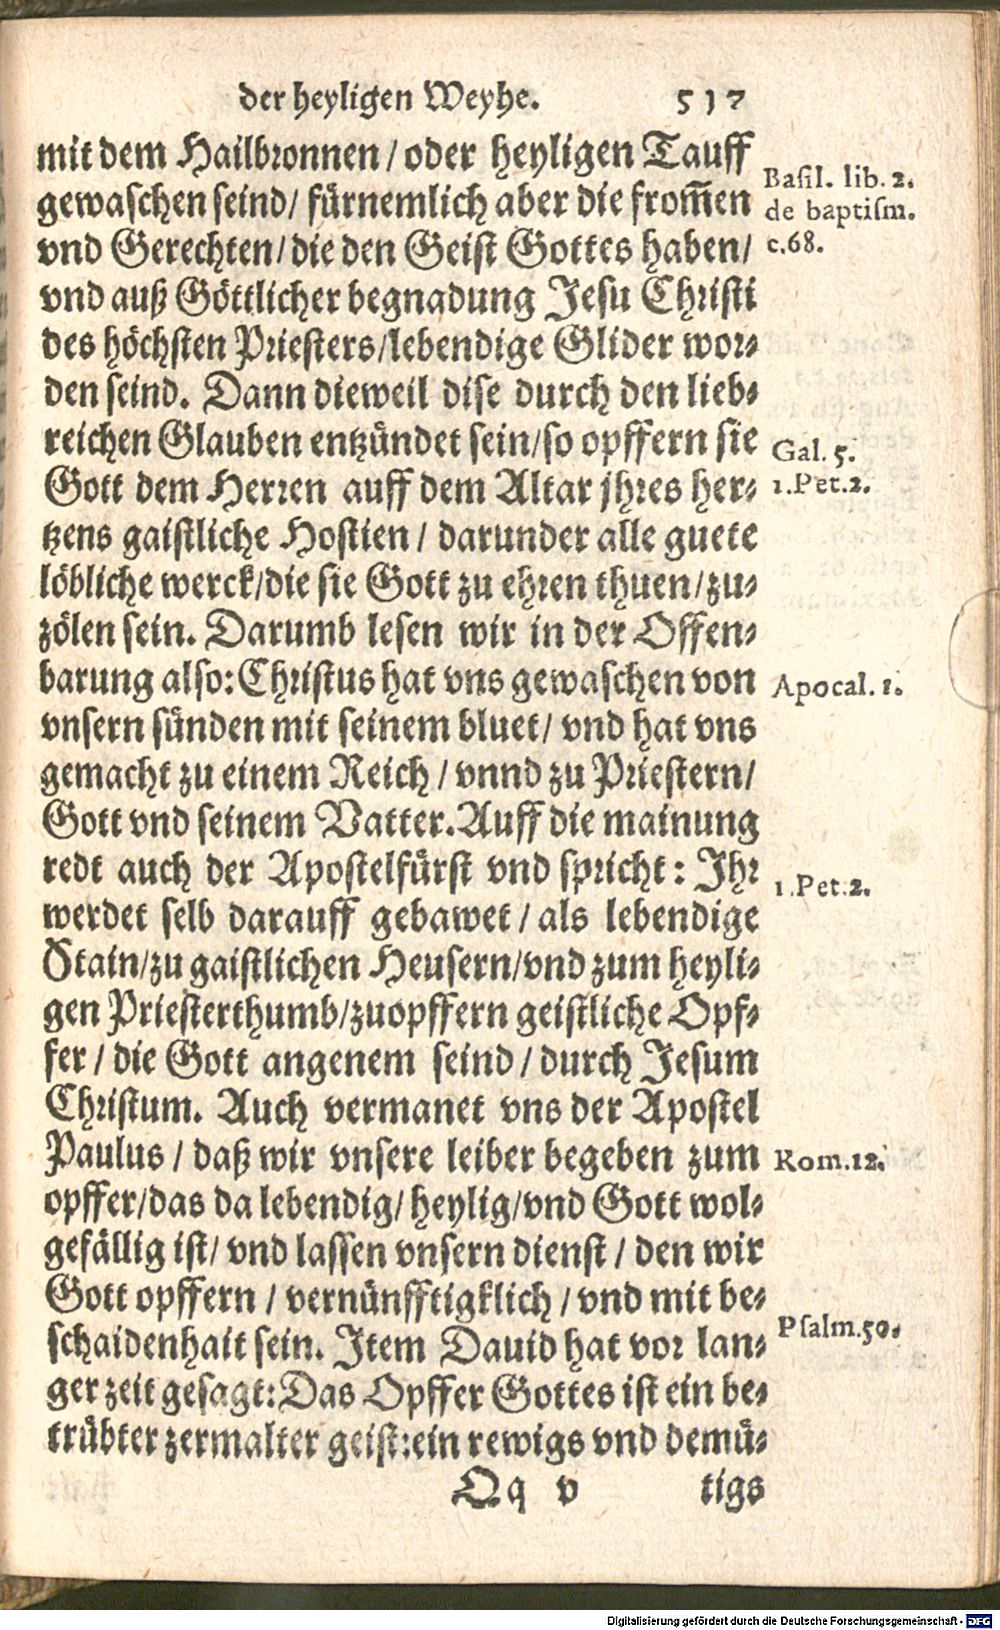 der heyligen Weyhe. 517
mit dem Hailbronnen / oder heyligen Tauff
gewaschen seind / fürnemlich aber die from̃en
vnd Gerechten / die den Geist Gottes haben /
vnd auß Göttlicher begnadung Jesu Christi
des höchsten Priesters / lebendige Glider wor-
den seind. Dann dieweil dise durch den lieb-
reichen Glauben entzündet sein / so opffern sie
Gott dem Herren auff dem Altar jhres her-
tzens gaistliche Hostien / darunder alle guete
löbliche werck / die sie Gott zu ehren thuen / zu-
zölen sein. Darumb lesen wir in der Offen-
barung also: Christus hat vns gewaschen von
vnsern sünden mit seinem bluet / vnd hat vns
gemacht zu einem Reich / vnnd zu Priestern /
Gott vnd seinem Vatter. Auff die mainung
redt auch der Apostelfürst vnd spricht: Ihr
werdet selb darauff gebawet / als lebendige
Stain / zu gaistlichen Heusern / vnd zum heyli-
gen Priesterthumb / zuopffern geistliche Opf-
fer / die Gott angenem seind / durch Jesum
Christum. Auch vermanet vns der Apostel
Paulus / daß wir vnsere leiber begeben zum
opffer / das da lebendig / heylig / vnd Gott wol-
gefällig ist / vnd lassen vnsern dienst / den wir
Gott opffern / vernünfftigklich / vnd mit be-
schaidenhait sein. Item Dauid hat vor lan-
ger zeit gesagt: Das Opffer Gottes ist ein be-
trübter zermalter geist: ein rewigs vnd demü-
Qq v tigs
Basil. lib. 2.
de baptism.
c.68.
Gal. 5.
1.Pet.2.
Apocal. 1.
1.Pet.2.
Rom.12.
Psalm.50.
Digitalisierung gefördert durch die Deutsche Forschungsgemeinschaft - DFG